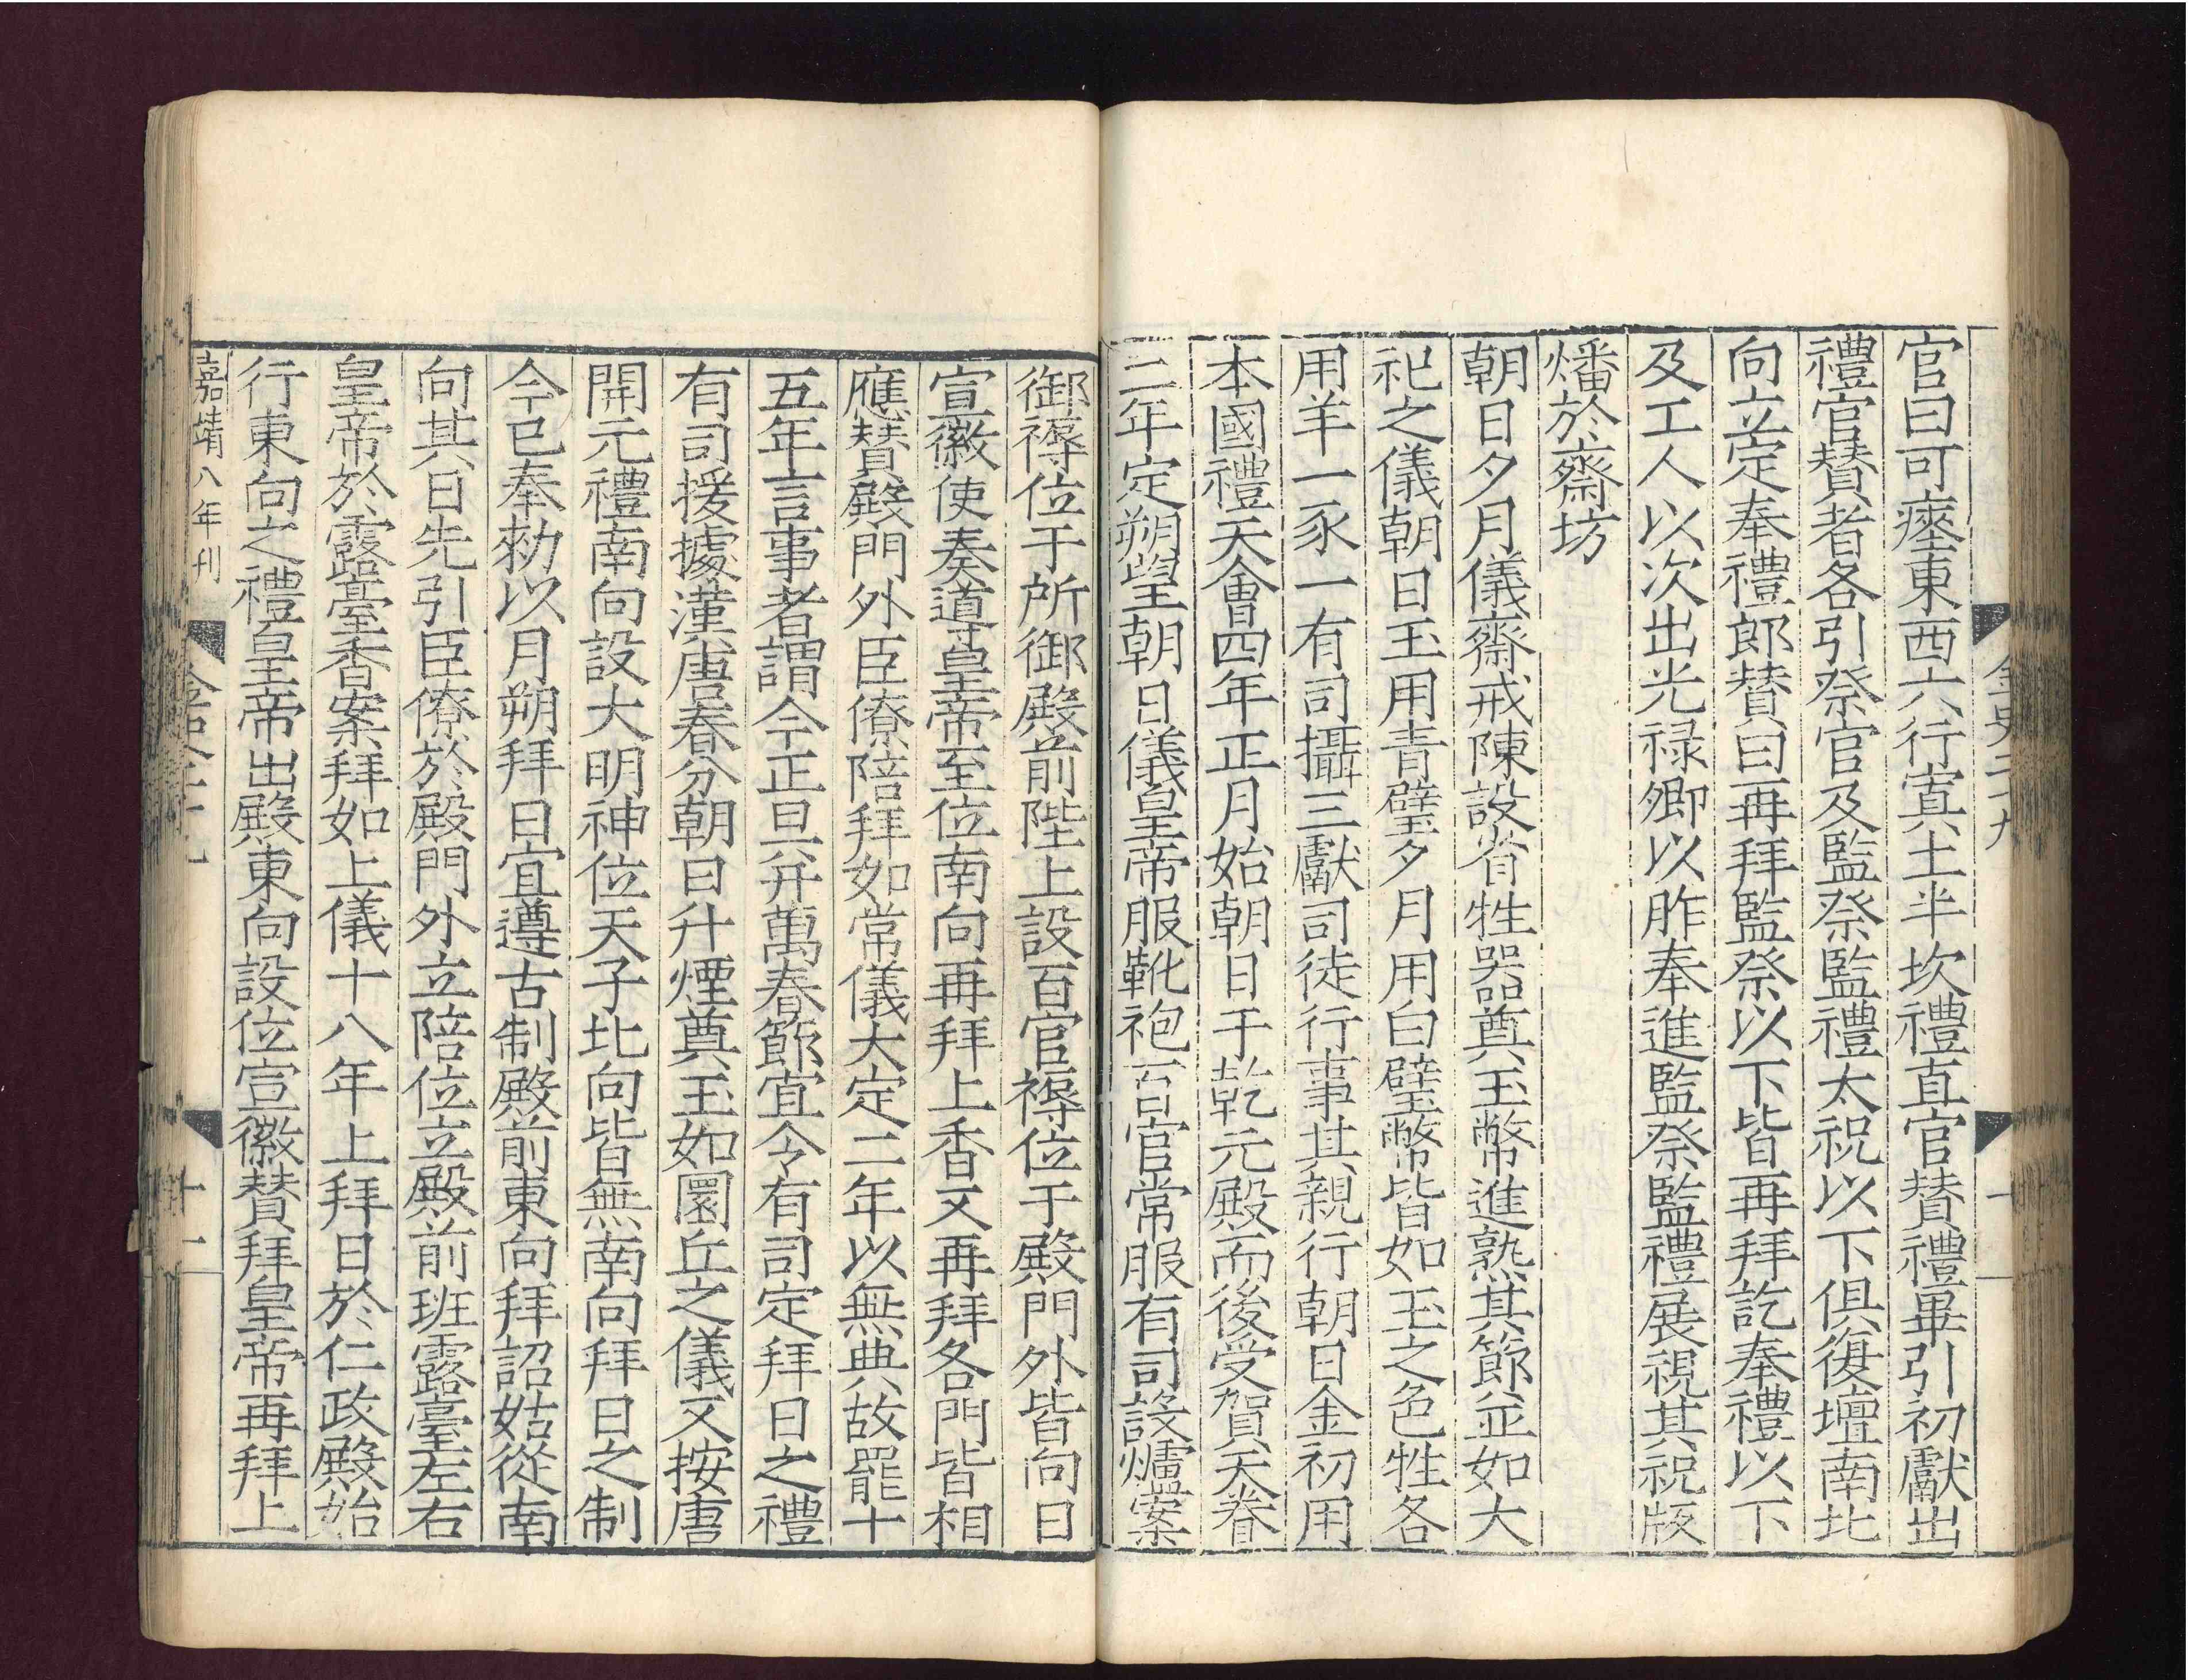 官曰可瘞東西六行寘土半坎禮直官贊禮畢引初獻出
禮官贊者各引祭官及監祭監禮太祝以下俱復壇南北
向立定奉禮郎贊曰再拜監祭以下皆再拜訖奉禮以下
及工人以次出光禄卿以胙奉進監祭監禮展視其祝版
燔於齋坊
朝日夕月儀齋戒陳設省牲器奠玉幣進熟其節並如大
祀之儀朝日玉用青璧夕月用白璧幣皆如玉之色牲各
用羊一豕一有司攝三獻司徒行事其親行朝日金初用
本國禮天會四年正月始朝日于乾元殿而後受賀天眷
二年定朔望朝日儀皇帝服靴袍百官常服有司設爐案
御褥位于所御殿前陛上設百官褥位于殿門外皆向日
宣徽使奏導皇帝至位南向再拜上香又再拜各門皆相
應贊殿門外臣僚陪拜如常儀大定二年以無典故罷十
五年言事者謂今正旦并萬春節宜令有司定拜日之禮
有司援據漢唐春分朝日升煙奠玉如圜丘之儀又按唐
開元禮南向設大明神位天子北向皆無南向拜日之制
今已奉勑以月朔拜日宜遵古制殿前東向拜詔姑從南
向其日先引臣僚於殿門外立陪位立殿前班露臺左右
皇帝於露臺香案拜如上儀十八年上拜日於仁政殿始
行東向之禮皇帝出殿東向設位宣徽贊拜皇帝再拜上
嘉靖八年刊
十一